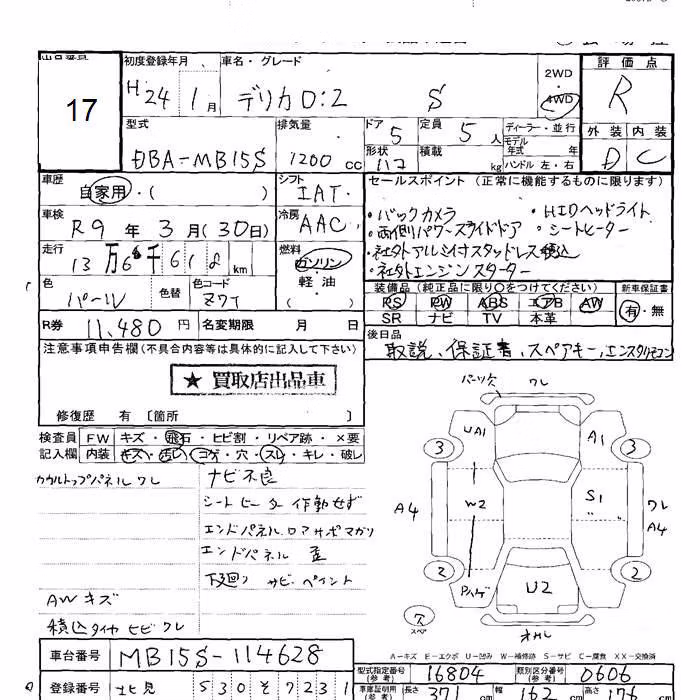 17
初度登録年月
車名・グレード
H24年1月
デリカD:2 S
2WD
4WD
評価点
R
外装 内装
D C
型式
DBA-MB15S
排気量
1200 cc
ドア
5
定員
5人
形状
積載
kg
ディーラー・並行
モデル年式 年
ハンドル 左・右
車歴
自家用・( )
シフト
IAT
セールスポイント (正常に機能するものに限ります)
・バックカメラ ・HIDヘッドライト
・両側パワースライドドア ・シートヒーター
・社外アルミ付スタッドレス積込
・社外エンジンスターター
車検
R9年3月(30日)
冷房
AAC
走行
13万6千618km
燃料
ガソリン
軽・油
( )
色
パール
色替
色コード
Z7T
装備品 (純正品に限り○をつけてください)
新車保証書
PS PW ABS エアB AW
SR ナビ TV 本革
有・無
R券 11,480円
名変期限 月 日
後日品
取説、保証書、スペアキー、エンスタリモコン
注意事項申告欄(不具合内容等は具体的に記入して下さい)
★買取店出品車
修復歴 有〔箇所 〕
検査員記入欄
FW キズ・飛石・ヒビ割・リペア跡・×要
内装 キズ・汚レ・コゲ・穴・スレ・キレ・破レ
カウルトップパネルワレ
ナビ不良
シートヒーター作動せず
エンドパネル ロアサポマガリ
エンドパネル 歪
下廻り サビ・ペイント
AWキズ
積込タイヤ ヒビワレ
パーツ欠 ワレ
UA1 A1
3 3
A4 W2 S1 ワレ
A4
2 2
Pハゲ U2
スペア
A-キズ E-エクボ U-凹み W-補修跡 S-サビ C-腐食 XX-交換済
車台番号 MB15S-114628
型式指定番号(参考) 16804
類別区分番号(参考) 0606
登録番号 北見 530 そ 7231
車庫証明用(参考) 長さ 371 cm 幅 162 cm 高さ 176 cm